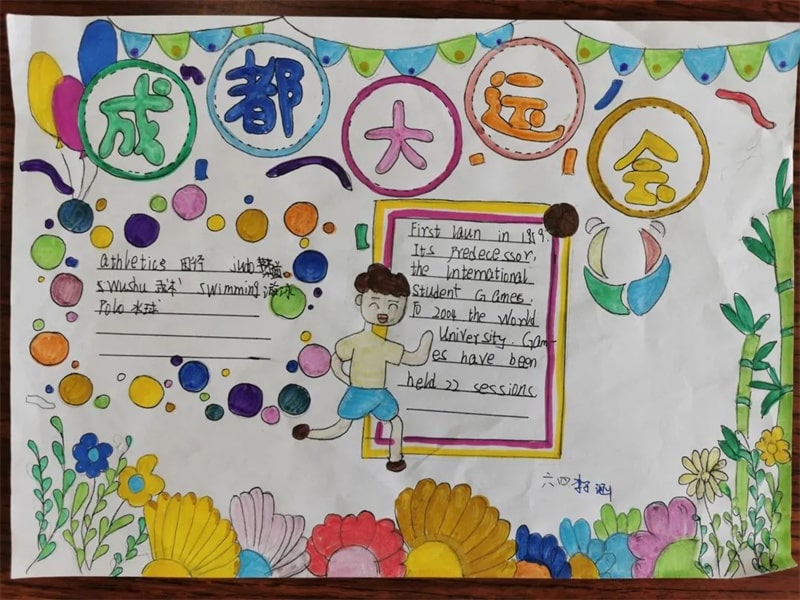 成都大运会
athletics 田径 judo 柔道
wushu 武术 swimming 游泳
Polo 水球
First laun in 1959.
Its Predecessor,
the International
Student Games.
To 2004 the World
University. Gam-
es have been
held 22 sessions
六四